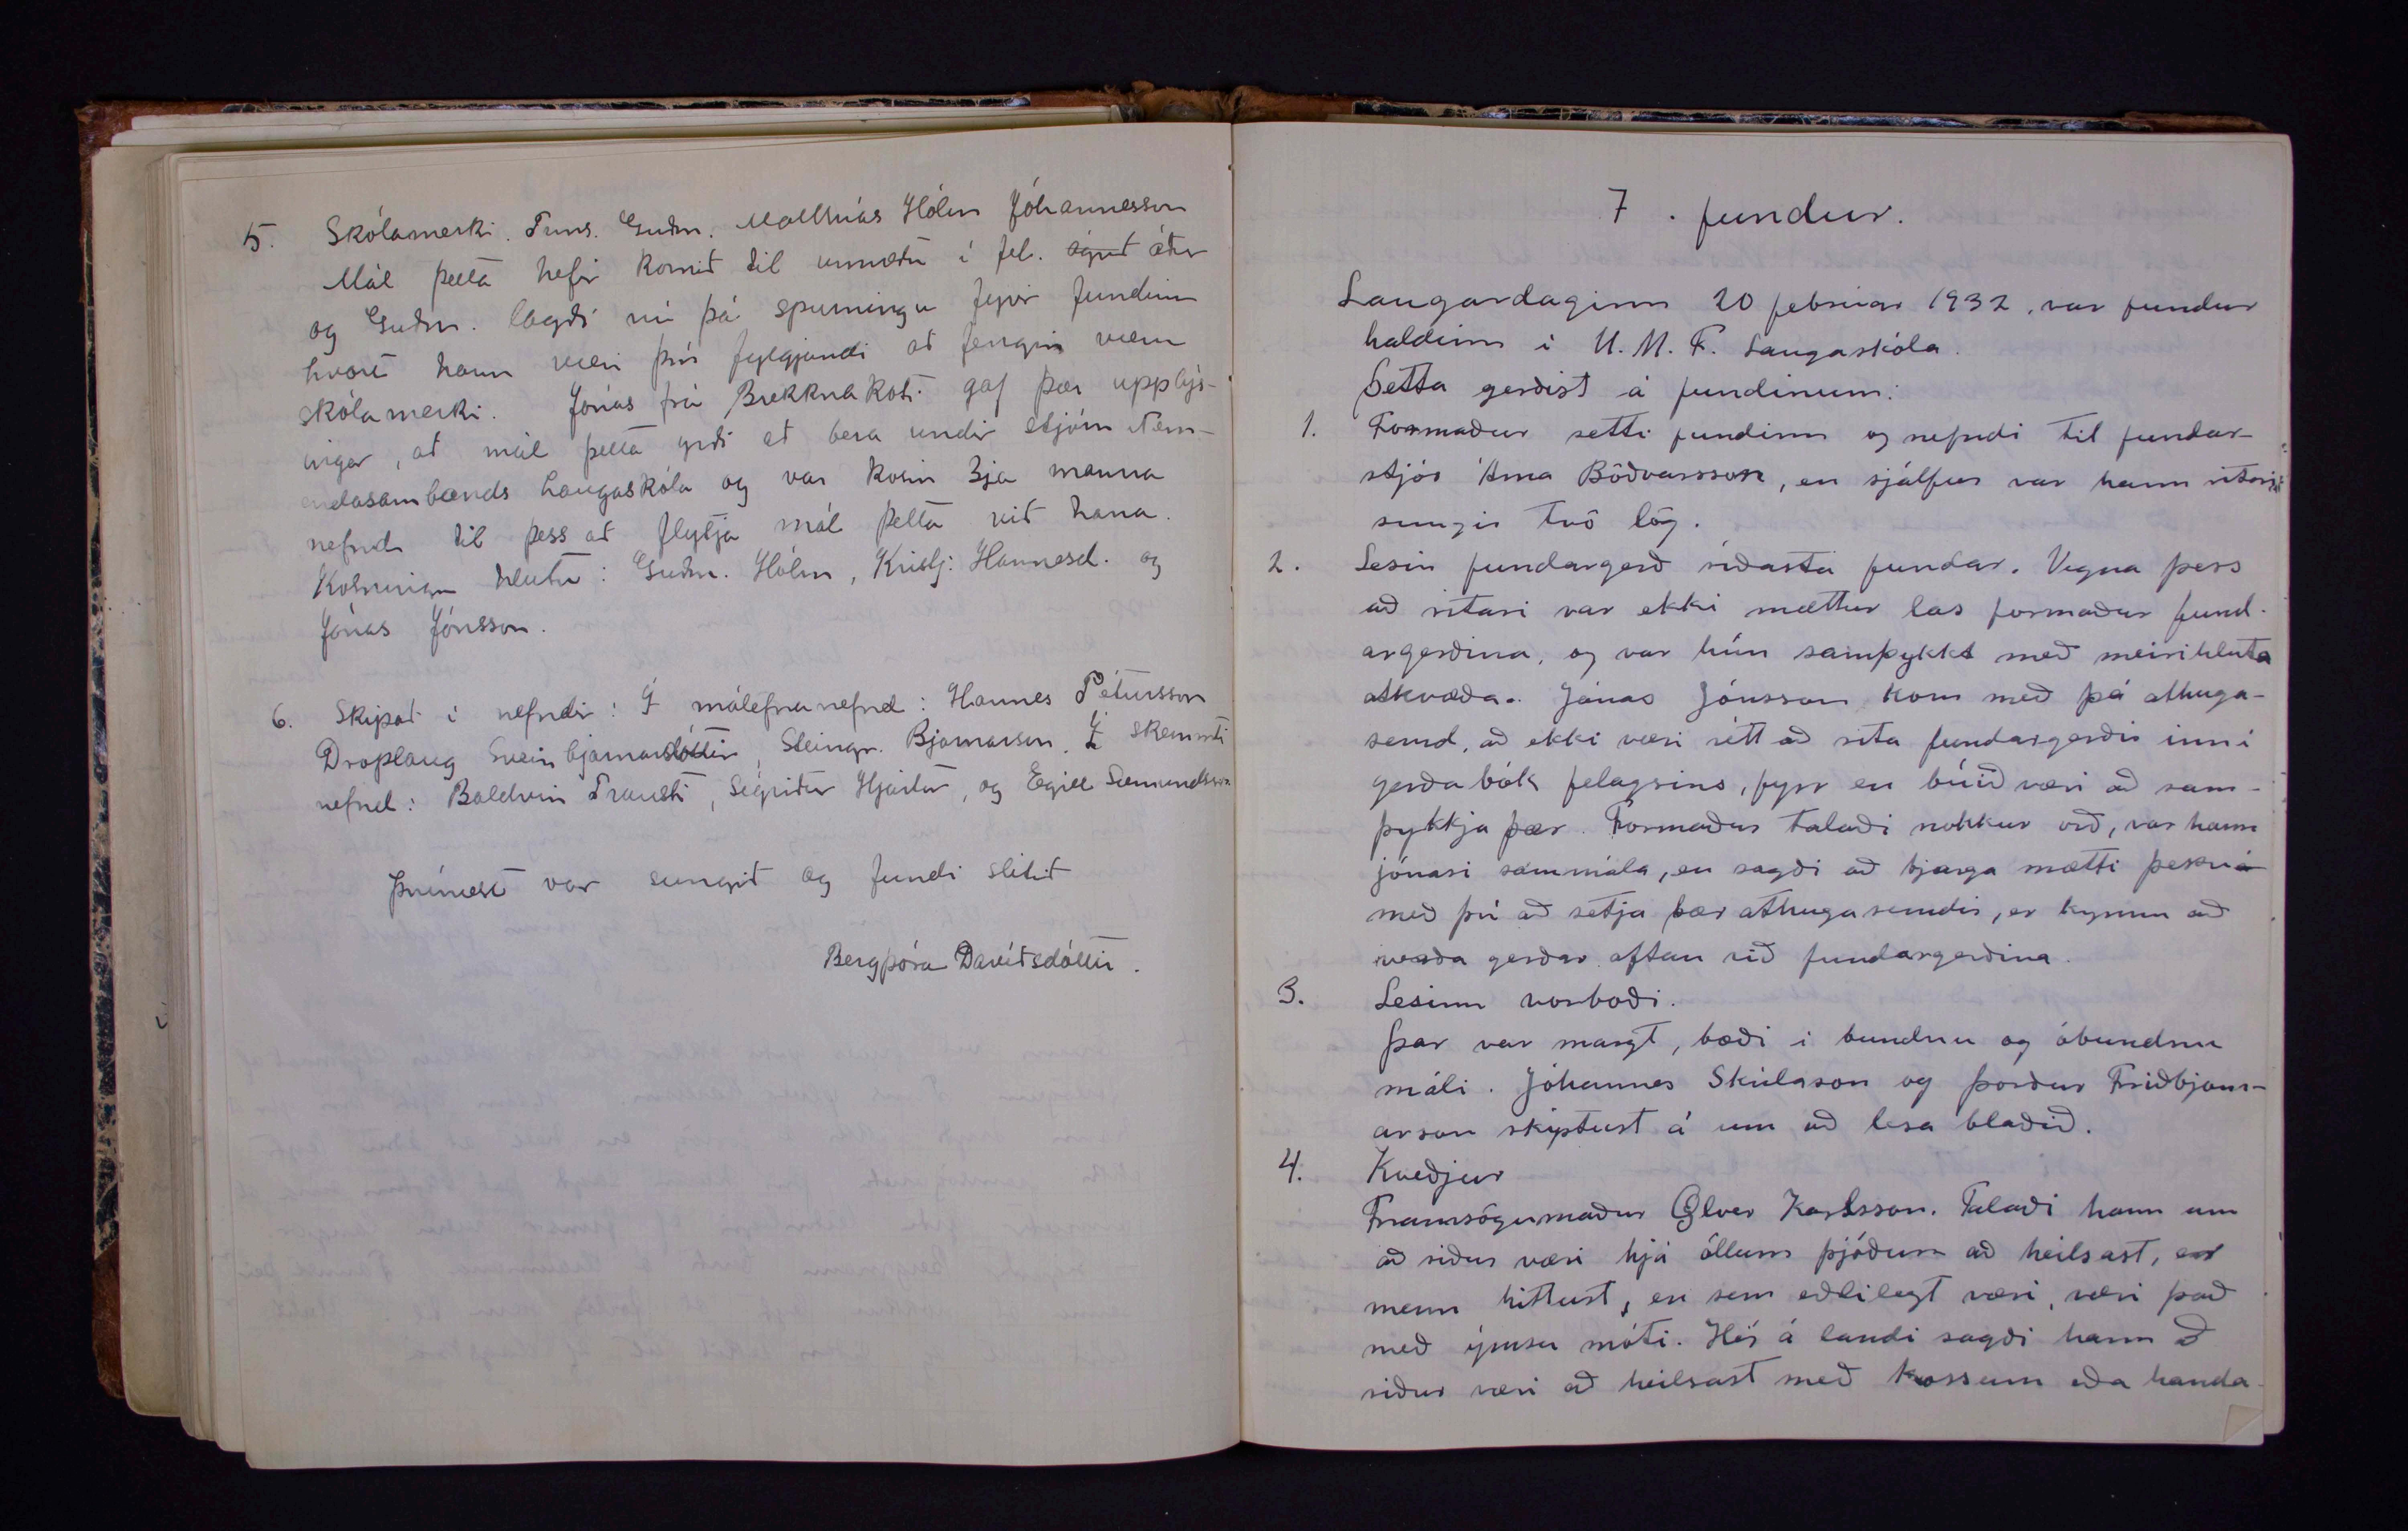 5. Skólamerki. Frums. Guðm. Matthías Hólm Jóhannesson
Mál þetta hefir komið til umræðu í fél. áður
og Guðm. lagði nú þá spurningu fyrir fundinn
hvort hann væri því fylgjandi að fengin væru
skólamerki. Jónas frá Brekknakoti gaf þær upplýs-
ingar, að mál þetta yrði að bera undir stjórn Nem-
endasambands Laugaskóla og var kosin 3ja manna
nefnd til þess að flytja mál þetta við hana.
Kosningu hlutu: Guðm. Hólm, Kristj. Hannesd. og
Jónas Jónsson.
6. Skipað í nefndir: Í málefnanefnd: Hannes Pétursson
Droplaug Sveinbjarnardóttir, Steingr. Bjarnason. Í skemmti
nefnd: Baldvin Trausti, Sigríður Hjartar, og Egill Sæmundsson.
Þvínæst var sungið og fundi slitið
Bergþóra Davíðsdóttir.
7. fundur.
Laugardaginn 20 februar 1932, var fundur
haldinn i U. M. F. Laugaskóla.
Þetta gerðist á fundinum:
1. Formaður setti fundinn og nefndi til fundar-
stjóra Árna Böðvarsson, en sjálfur var hann ritari
sungin tvö lög.
2. Lesin fundargerð síðasta fundar. Vegna þess
að ritari var ekki mættur las formaður fund-
argerðina, og var hún samþykkt með meirihluta
atkvæða. Jónas Jónsson kom með þá athuga-
semd, að ekki væri rétt að rita fundargerðir inn í
gerðabók felagsins, fyrr en búið væri að sam-
þykkja þær. Formaður talaði nokkur orð, var hann
jónasi sammála, en sagði að bjarga mætti þessu
með því að setja þær athugasemdir, er kynnu að
verða gerðar aftan við fundargerðina.
3. Lesinn vorboði.
Þar var margt, bæði i bundnu og óbundnu
máli. Jóhannes Skúlason og Þorður Friðbjarn-
arson skiptust á um að lesa blaðið.
4. Kveðjur
Framsögumaður Ölver Karlsson. Talaði hann um
að siður væri hjá öllum þjóðum að heilsast, er
menn hittust, en sem eðlilegt væri, væri það
með ýmsu móti. Hér á landi sagði hann að
siður væri að heilsast með kossum eða handa-